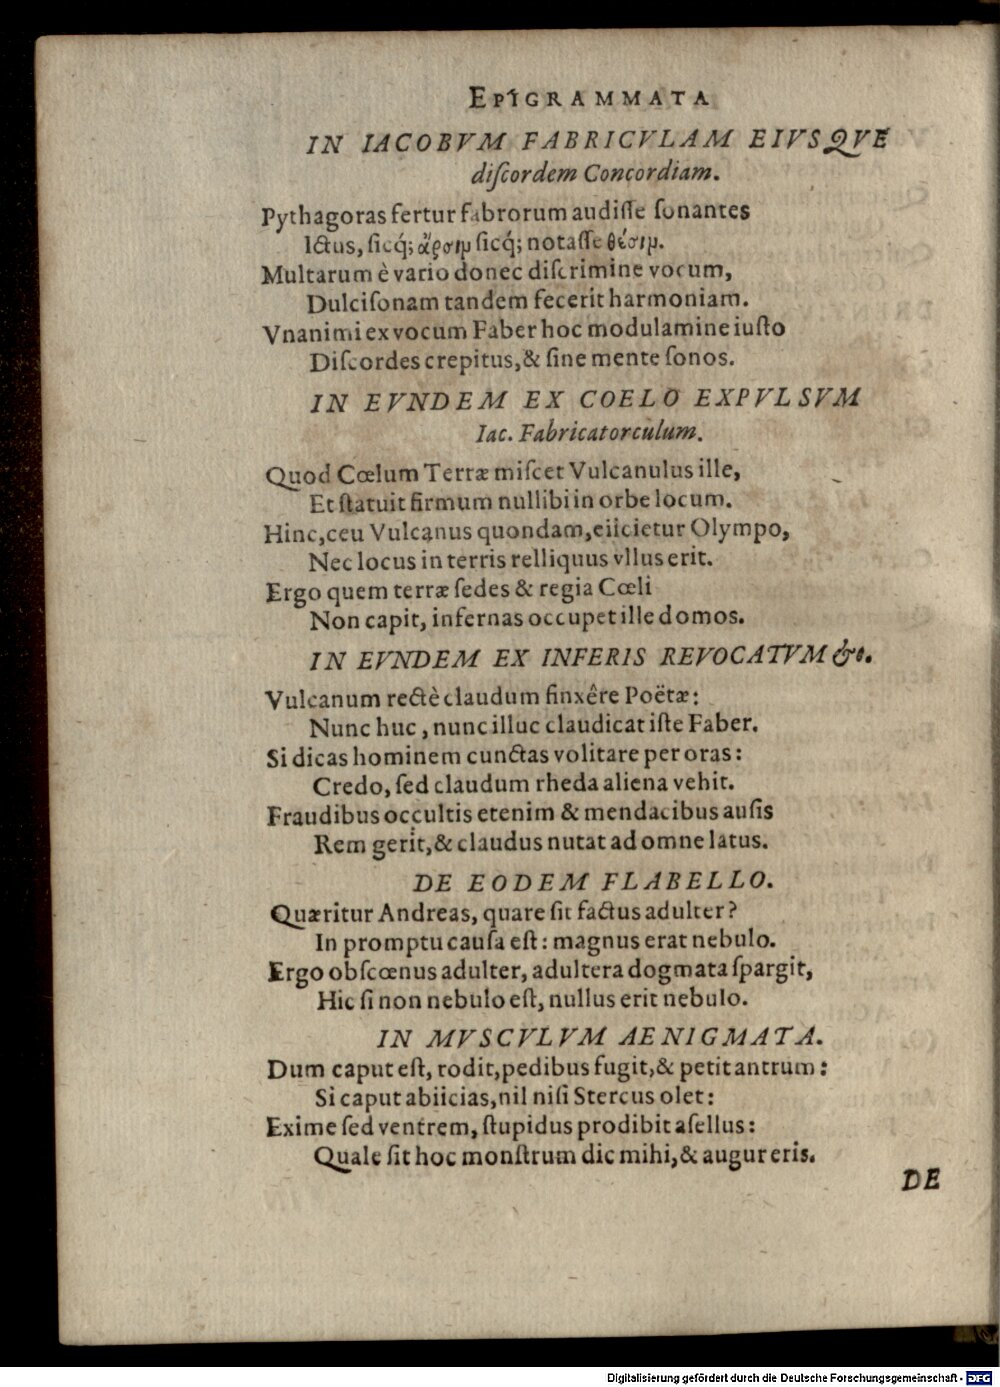 EPIGRAMMATA
IN IACOBVM FABRICVLAM EIVSQVE
diſcordem Concordiam.
Pythagoras fertur fabrorum audiſſe ſonantes
Ictus, ſicq́; ἄρσιμ ſicq́; notaſſe θέσιμ.
Multarum è vario donec diſcrimine vocum,
Dulciſonam tandem fecerit harmoniam.
Vnanimi ex vocum Faber hoc modulamine iuſto
Diſcordes crepitus, & ſine mente ſonos.
IN EVNDEM EX COELO EXPVLSVM
Iac. Fabricatorculum.
Quod Cœlum Terræ miſcet Vulcanulus ille,
Et ſtatuit firmum nullibi in orbe locum.
Hinc, ceu Vulcanus quondam, eiicietur Olympo,
Nec locus in terris relliquus vllus erit.
Ergo quem terræ ſedes & regia Cœli
Non capit, infernas occupet ille domos.
IN EVNDEM EX INFERIS REVOCATVM &c.
Vulcanum rectè claudum finxêre Poëtæ:
Nunc huc, nunc illuc claudicat iſte Faber.
Si dicas hominem cunctas volitare per oras:
Credo, ſed claudum rheda aliena vehit.
Fraudibus occultis etenim & mendacibus auſis
Rem gerit, & claudus nutat ad omne latus.
DE EODEM FLABELLO.
Quæritur Andreas, quare ſit factus adulter?
In promptu cauſa eſt: magnus erat nebulo.
Ergo obſcœnus adulter, adultera dogmata ſpargit,
Hic ſi non nebulo eſt, nullus erit nebulo.
IN MVSCVLVM AENIGMATA.
Dum caput eſt, rodit, pedibus fugit, & petit antrum:
Si caput abiicias, nil niſi Stercus olet:
Exime ſed ventrem, ſtupidus prodibit aſellus:
Quale ſit hoc monſtrum dic mihi, & augur eris.
DE
Digitalisierung gefördert durch die Deutsche Forschungsgemeinschaft - DFG